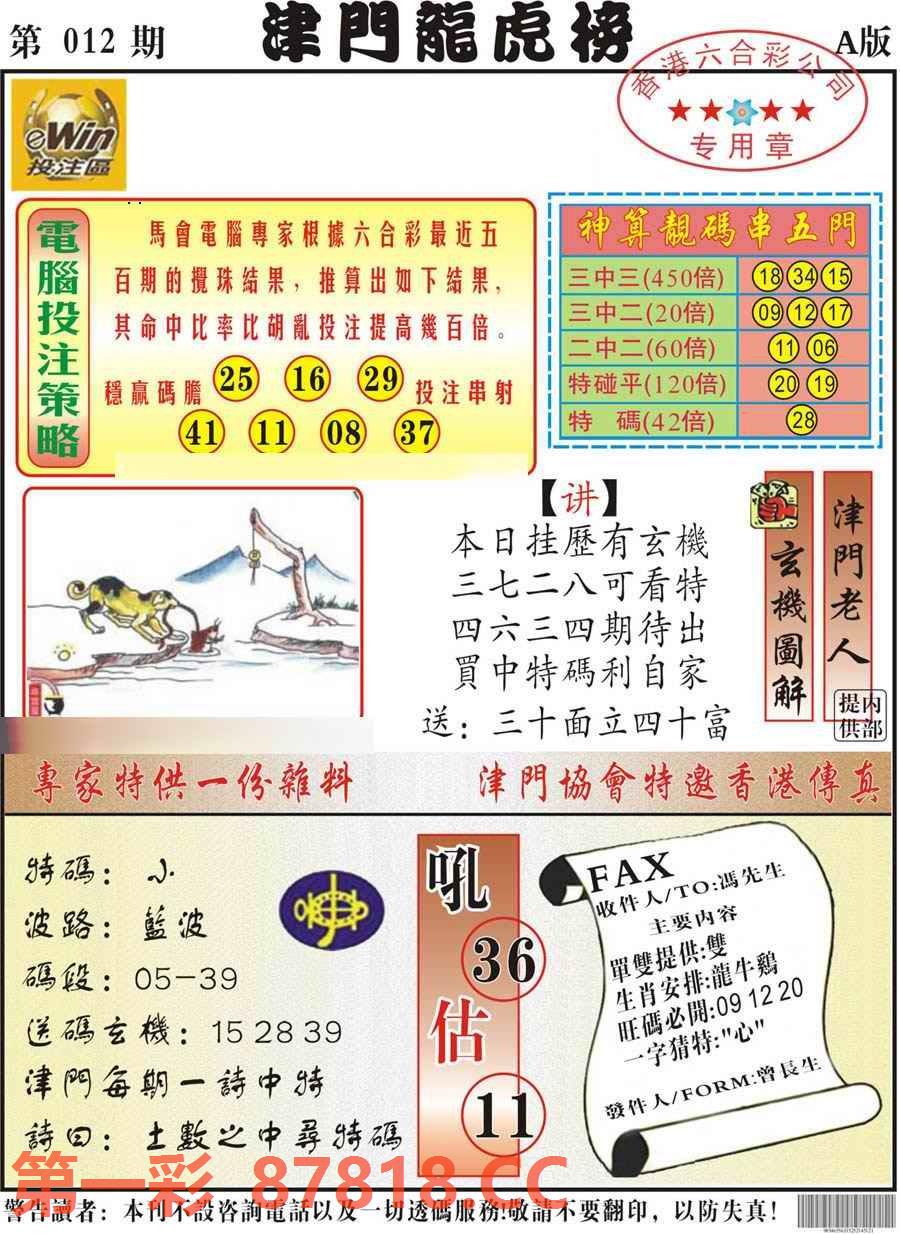 第 012 期
津門龍虎榜
A版
香港六合彩公司
专用章
eWin
投注區
電腦投注策略
馬會電腦專家根據六合彩最近五
百期的攪珠結果，推算出如下結果，
其命中比率比胡亂投注提高幾百倍。
穩贏碼膽 25 16 29 投注串射
41 11 08 37
神算靚碼串五門
三中三(450倍) 18 34 15
三中二(20倍) 09 12 17
二中二(60倍) 11 06
特碰平(120倍) 20 19
特 碼(42倍) 28
【讲】
本日挂歷有玄機
三七二八可看特
四六三四期待出
買中特碼利自家
送：三十面立四十富
玄機圖解
津門老人
内部提供
專家特供一份雜料
津門協會特邀香港傳真
特碼：小
波路：藍波
碼段：05-39
送碼玄機：15 28 39
津門每期一詩中特
詩曰：土數之中尋特碼
吼
36
估
11
FAX
收件人/TO:馮先生
主要内容
單雙提供:雙
生肖安排:龍牛鷄
旺碼必開:09 12 20
一字猜特:"心"
發件人/FORM:曾長生
第一彩 87818.CC
警告讀者：本刊不設咨詢電話以及一切透碼服務!敬請不要翻印，以防失真!